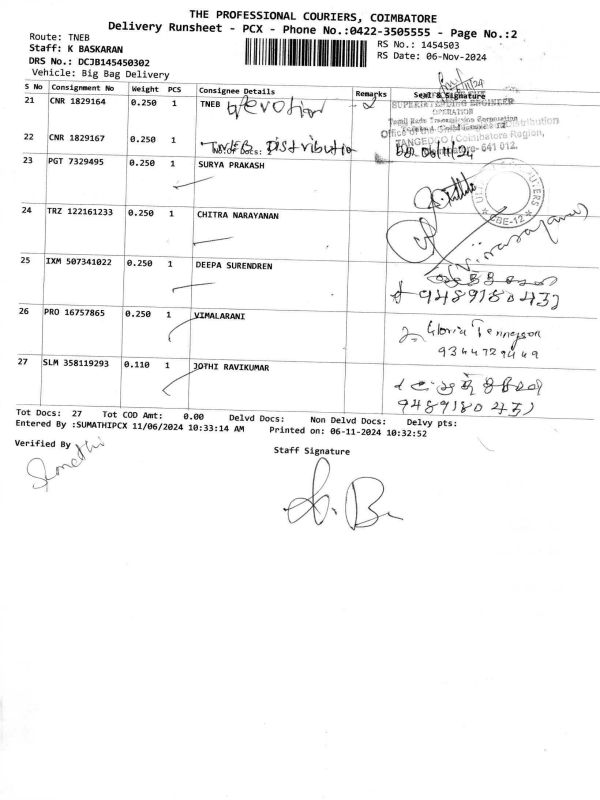 THE PROFESSIONAL COURIERS, COIMBATORE
Delivery Runsheet - PCX - Phone No.:0422-3505555 - Page No.:2
Route: TNEB
RS No.: 1454503
Staff: K BASKARAN
RS Date: 06-Nov-2024
DRS No.: DCJB145450302
Vehicle: Big Bag Delivery
S No Consignment No Weight PCS Consignee Details Remarks Seal & Signature
21 CNR 1829164 0.250 1 TNEB operation - 2
SUPERINTENDING ENGINEER
OPERATION
22 CNR 1829167 0.250 1 TNEB Distribution
No.Of Docs:
TANGEDCO / Coimbatore Region,
641 012.
23 PGT 7329495 0.250 1 SURYA PRAKASH
CBE-12
24 TRZ 122161233 0.250 1 CHITRA NARAYANAN
25 IXM 507341022 0.250 1 DEEPA SURENDREN
26 PRO 16757865 0.250 1 VIMALARANI
Gloria Tennyson
27 SLM 358119293 0.110 1 JOTHI RAVIKUMAR
Tot Docs: 27 Tot COD Amt: 0.00 Delvd Docs: Non Delvd Docs: Delvy pts:
Entered By :SUMATHIPCX 11/06/2024 10:33:14 AM Printed on: 06-11-2024 10:32:52
Verified By
Sumathi
Staff Signature